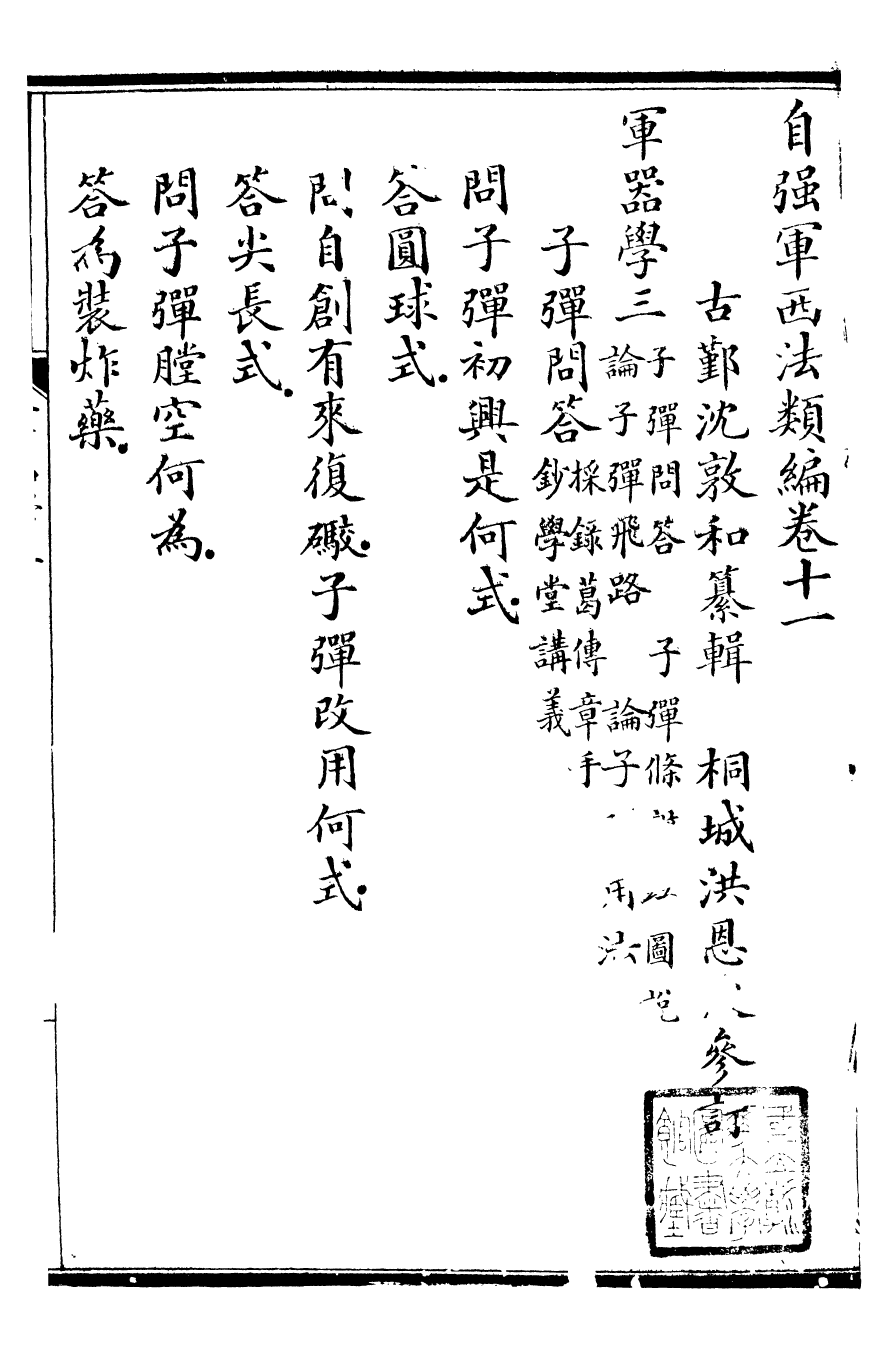 自强軍西法類編卷十一
古鄞沈敦和纂輯　桐城洪恩　參訂
軍器學三 子彈問答　子彈條　　圖說
論子彈飛路　論子　　用法
子彈問答 採錄葛傳章手
鈔學堂講義
問子彈初興是何式。
答圓球式。
問自創有來復礮。子彈改用何式。
答尖長式。
問子彈膛空何為。
答為裝炸藥。